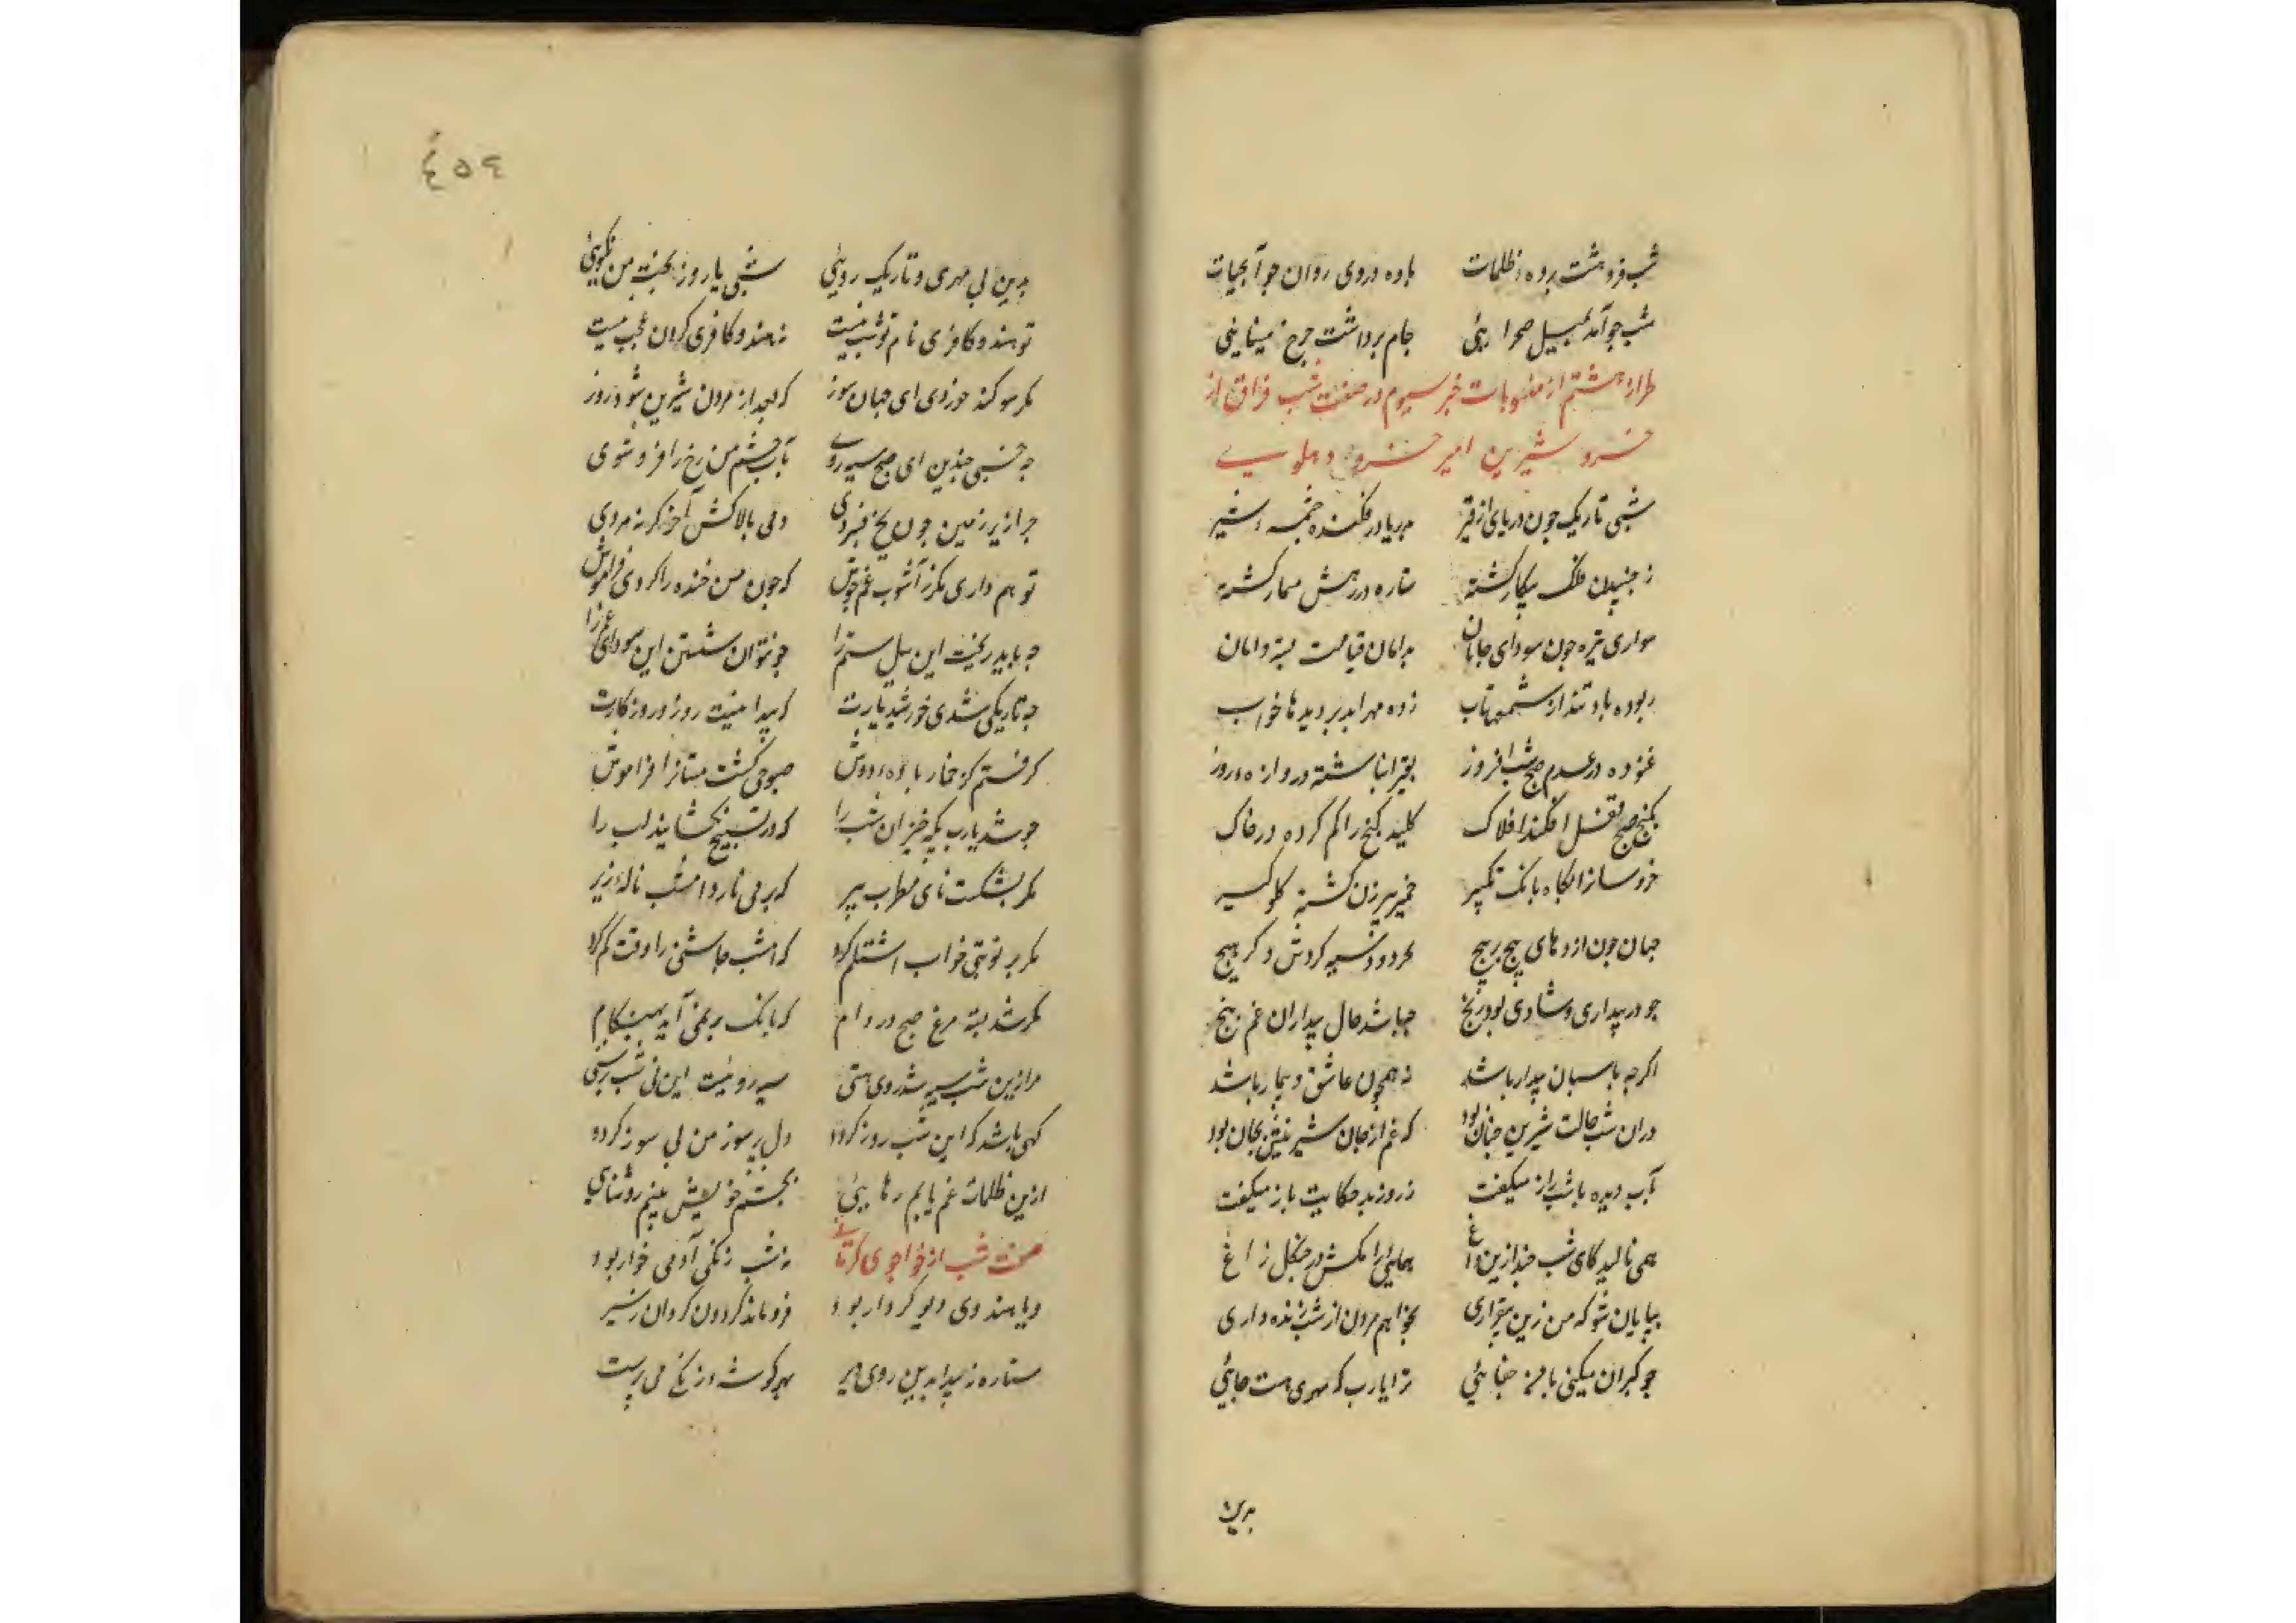 شب فروهشت پرده ظلمات باده در وی روان جو آبحیات
شب جو آمد بسیل صحرایی جام برداشت جرخ مینایی
طراز هشتم از منسوبات خبر سیوم در صفت شب فراق از
خسرو شیرین امیر خسرو دهلوی
شبی تاریک جون دریای از قیر بدریا در فکنده چشمه شیر
ز جنبیدن فلک بیکار کشته ستاره در رهش مسمار کشته
سواری تیره جون سودای جانان بدامان قیامت بسته دامان
ربوده باد تند از شمع مهتاب زده مهر ابد بر دیدها خواب
غنوده در عدم صبح شب افروز بقیر انباشته دروازه روز
بکنج صبح قفل افکند افلاک کلید کنج را کم کرده در خاک
خروسانرا بکاه بانک تکبیر خمیر پیرزن کشته کلوکیر
جهان جون ازدهای پیج بر پیج بجز دود سیه کردش دکر هیج
جو در بیداری و شادی بود رنج جه باشد حال بیداران غم سنج
اکرجه پاسبان بیدار باشد نه همچون عاشق و بیمار باشد
در آن شب حالت شیرین جنان بود که غم از جان شیرینش بجان بود
بآب دیده با شب راز میکفت ز روز بد حکایت باز میکفت
همی نالید کای شب جند ازین داغ همایی را مکش در جنکل زاغ
بپایان شو که من زین بیقراری بخواهم مردن از شب زنده داری
جو کبران میکنی با من جفایی ترا یارب که مهری هست جایی
بدین
٤٥٤
بدین بی مهری و تاریک رویی شبی یا روز بخت من نکویی
تو هندو کافری نام تو شب نیست ز هندو کافری کردن عجب نیست
مکر سوکند خوردی ای جهان سوز که بعد از مردن شیرین شود روز
جه خسبی جندین ای صبح سیه روی بآب چشم من رخ را فرو شوی
جرا زیر زمین جون یخ فسردی دمی بالا کش آخر کر نه مردی
تو هم داری مکر ز آشوب غم جوش که جون من خنده را کردی فراموش
جه باید ریخت این سیل ستم را جو نتوان شستن این سودای غم را
جه تاریکی شدی خورشید یارت که پیدا نیست روز و روزکارت
کرفتم کز خمار باده دوش صبوحی کشت مستانرا فراموش
جو شد یارب بکه خیزان شب را که در تسبیح نکشایند لب را
مکر بشکست نای مطرب پیر که بر می نارد امشب ناله زیر
مکر بر نوبتی خواب اشتلم کرد که امشب جاشنی را وقت کم کرد
مکر شد بسته مرغ صبح در دام که بانک بر نمی آید بهنکام
مرا زین شب سیه شد روی هستی سیه روییست این نی شب پرستی
کهی باشد که این شب روز کردد دل پر سوز من بی سوز کردد
ازین ظلمات غم یابم رهایی بچشم خویش بینم روشنایی
صفت شب از خواجوی کرمانی نه شب زنکی آدمی خوار بود
و یا هندوی دیو کردار بود فرو ماند کردون کردان ز سیر
ستاره نه پیدا بدین روی دیر بهر کوشه در زنکی می پرست